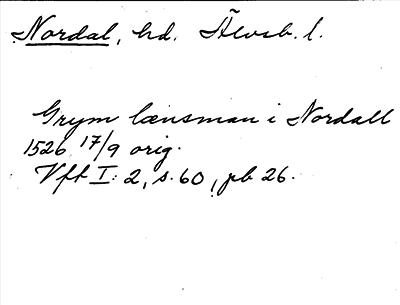 Nordal, hd. Älvsb. l.
Grym lænsman i Nordall
1526 17/9 orig.
Vft I: 2, s. 60, pb 26.